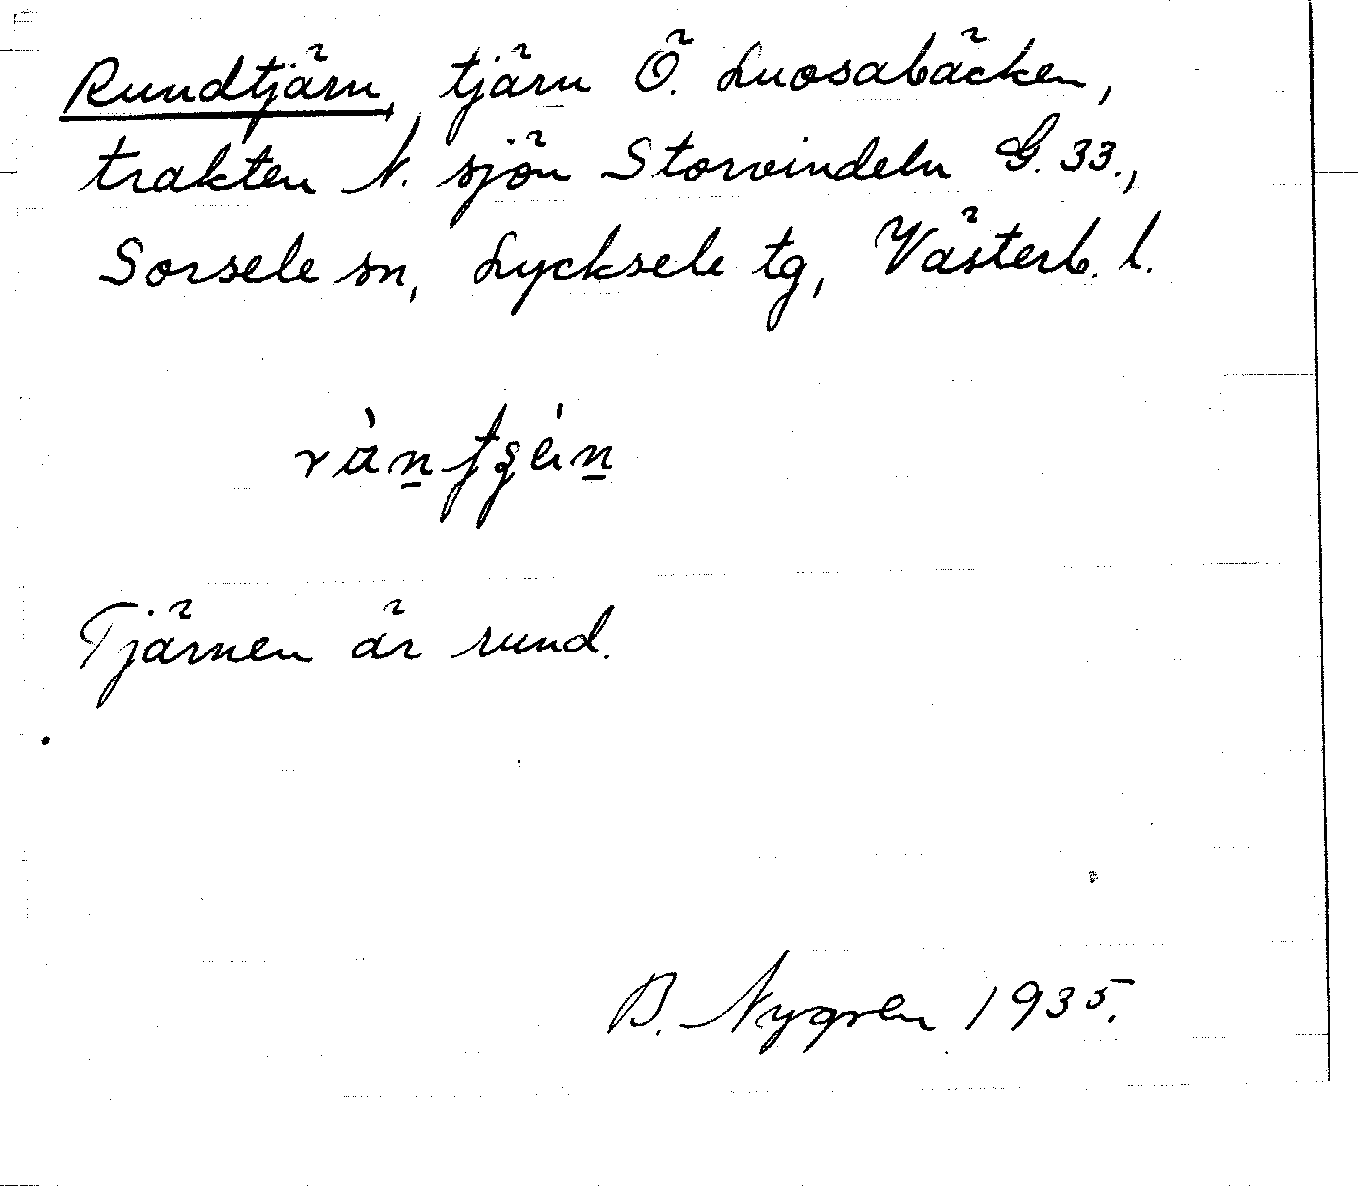 Rundtjärn, tjärn Ö. Luosabäcken,
trakten N. sjön Storvindeln G. 33.,
Sorsele sn, Lycksele tg, Västerb. l.
Tjärnen är rund.
B. Nygren 1935.